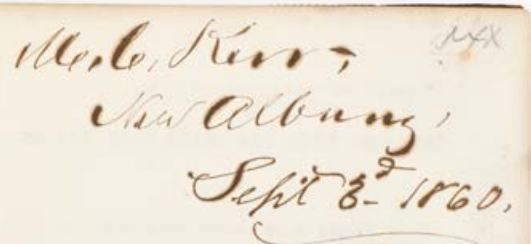 M. C. Kerr,
New Albany,
Sept 3d 1860.